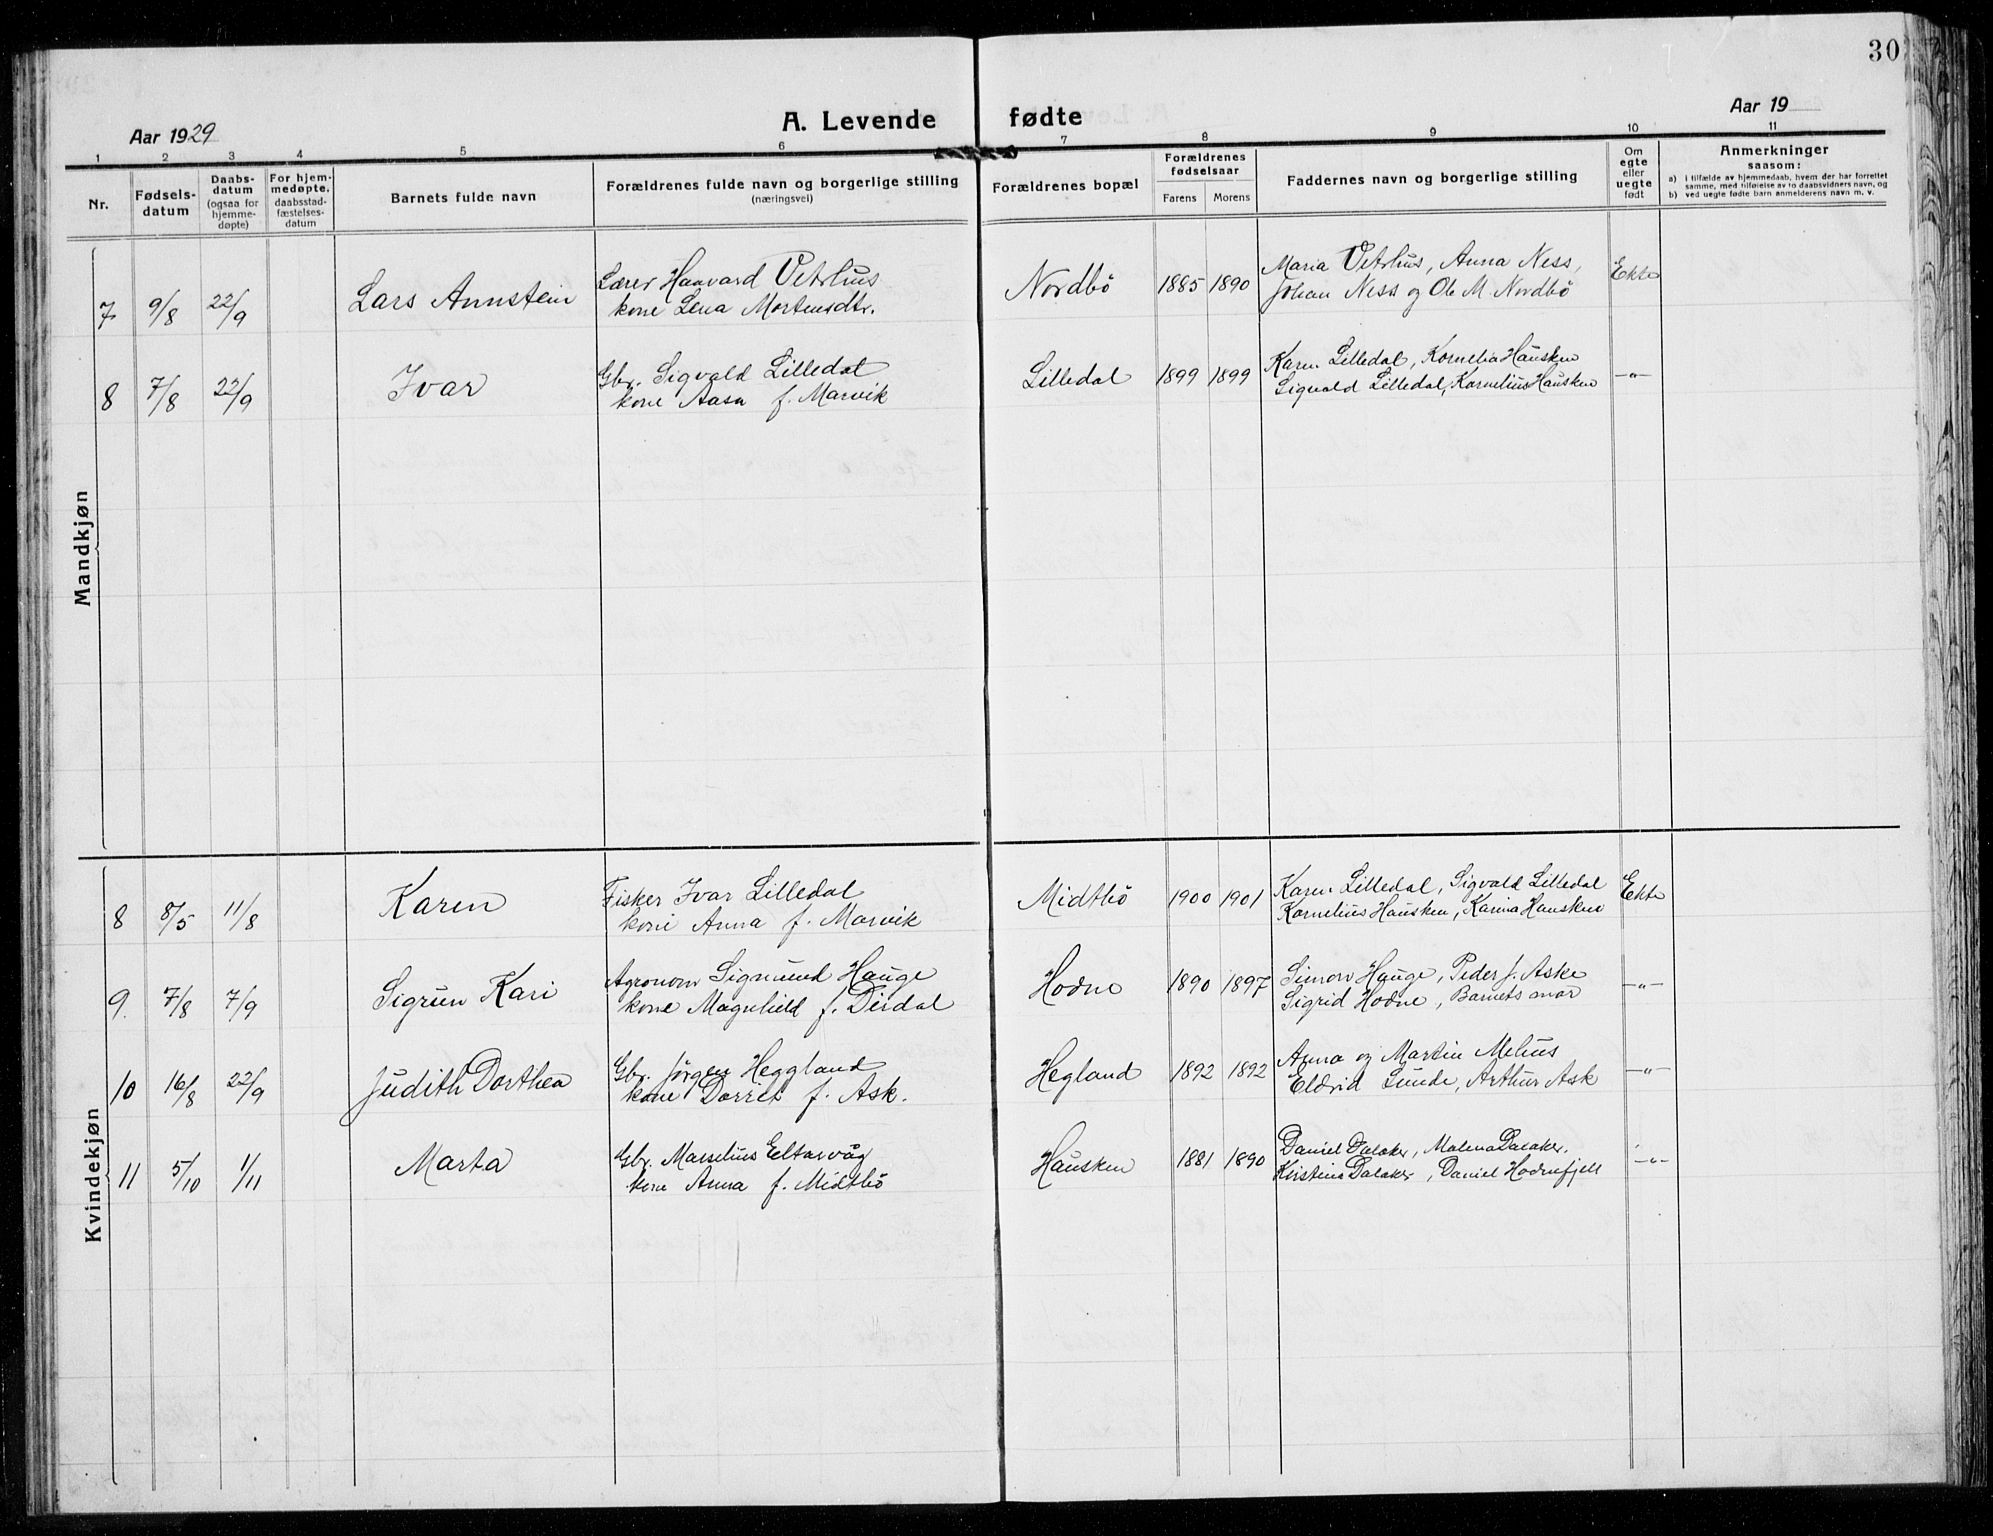 30
Aar 1929
A. Levende fødte
Aar 19
1 2 3 4 5 6 7 8 9 10 11
Nr.
Fødsels-
datum
Daabs-
datum
(ogsaa for
hjemme-
døpte)
For hjem-
medøpte,
daabsstad-
fæstelses-
datum
Barnets fulde navn
Forældrenes fulde navn og borgerlige stilling
(næringsvei)
Forældrenes bopæl
Forældrenes
fødselsaar
Farens Morens
Faddernes navn og borgerlige stilling
Om
egte
eller
uegte
født
Anmerkninger
saasom:
a) i tilfælde av hjemmedaab, hvem der har forrettet
samme, med tilføielse av to daabsvidners navn, og
b) ved uegte fødte barn anmelderens navn m. v.
Mandkjøn
7 9/8 22/9 Lars Annstein Lærer Haavard Vetrhus Nordbö 1885 1890 Maria Vetrhus, Anna Ness, Ekte
kone Lena Mortensdtr. Johan Ness og Ole M. Nordbö
8 7/8 22/9 Ivar Gbr. Sigvald Lilledal Lilledal 1899 1899 Karen Lilledal, Kornelia Hausken —"—
kone Aasa f. Marvik Sigvald Lilledal, Kornelius Hausken
Kvindekjøn
8 8/5 11/8 Karen Fisker Ivar Lilledal Midtbö 1900 1901 Karen Lilledal, Sigvald Lilledal Ekte
kone Anna f. Marvik Kornelius Hausken, Karina Hausken
9. 7/8 7/9 Sigrun Kari Agronom Sigmund Hauge Hodne 1890 1897 Simon Hauge, Peder J. Aske —"—
kone Magnhild f. Dirdal Sigrid Hodne, Barnets mor
10 16/8 22/9 Judith Dorthea Gbr. Jörgen Heggland Hegland 1892 1892 Anna og Martin Melius —"—
kone Dorrit f. Ask. Eldrid Lunde, Arthur Ask
11 5/10 1/11 Marta Gbr. Marselius Eltarvåg Hausken 1881 1890 Daniel Dalaker, Malena Dalaker, —"—
kone Anna f. Midtbö Kirstina Dalaker, Daniel Hodnefjell